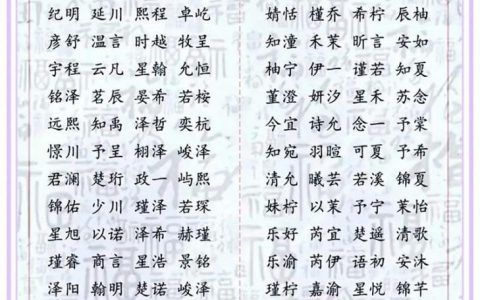 纪明 延川 熙程 卓屹
彦舒 温言 时越 牧呈
宇程 云凡 星翰 允恒
铭泽 茗辰 晏希 若桉
远熙 知禹 泽哲 奕杭
憬川 予呈 栩泽 峻泽
君澜 楚珩 政一 屿熙
锦佑 少川 瑾泽 若琛
星旭 以诺 泽希 赫瑾
瑾睿 商言 星浩 景铭
泽阳 翰明 楚诺 峻泽
婧恬 槿乔 希柠 辰柚
知潼 禾茉 昕言 安如
柚宁 伊一 谨若 知夏
董澄 妍汐 星禾 苏念
今宜 诗允 念一 予棠
知宛 羽暄 可夏 予希
清允 曦芸 若溪 锦夏
姝柠 以茉 予宁 茉怡
乐好 芮宜 楚遥 清歌
乐渝 芮伊 语初 安沐
瑾柠 嘉渝 星悦 锦芊